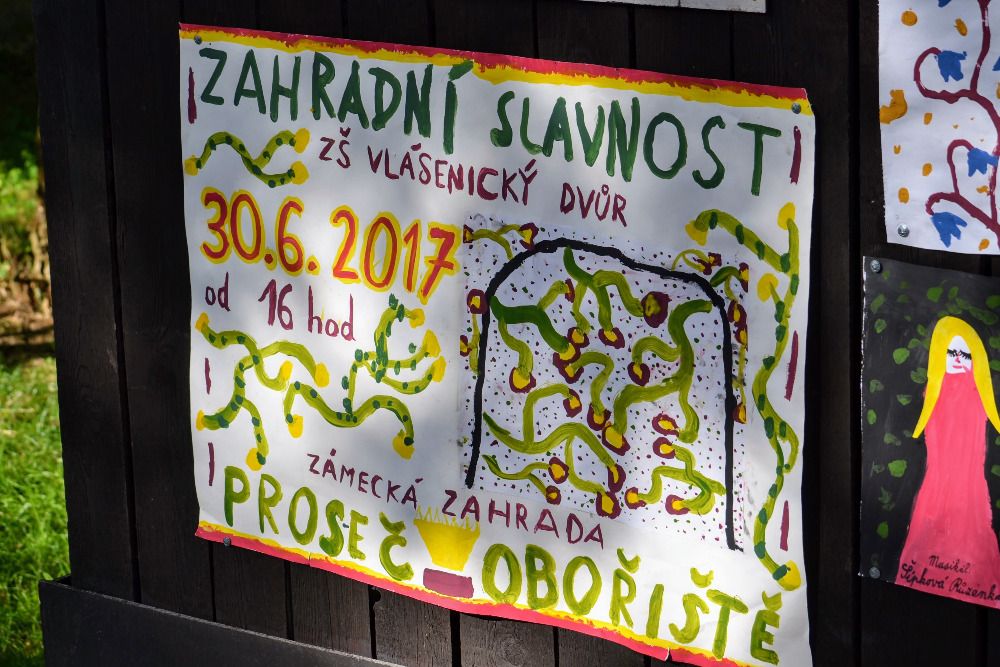 ZAHRADNÍ SLAVNOST
ZŠ VLÁSENICKÝ DVŮR
30.6.2017
od 16 hod
ZÁMECKÁ ZAHRADA
PROSEČ OBOŘIŠTĚ
Šípková Růženka